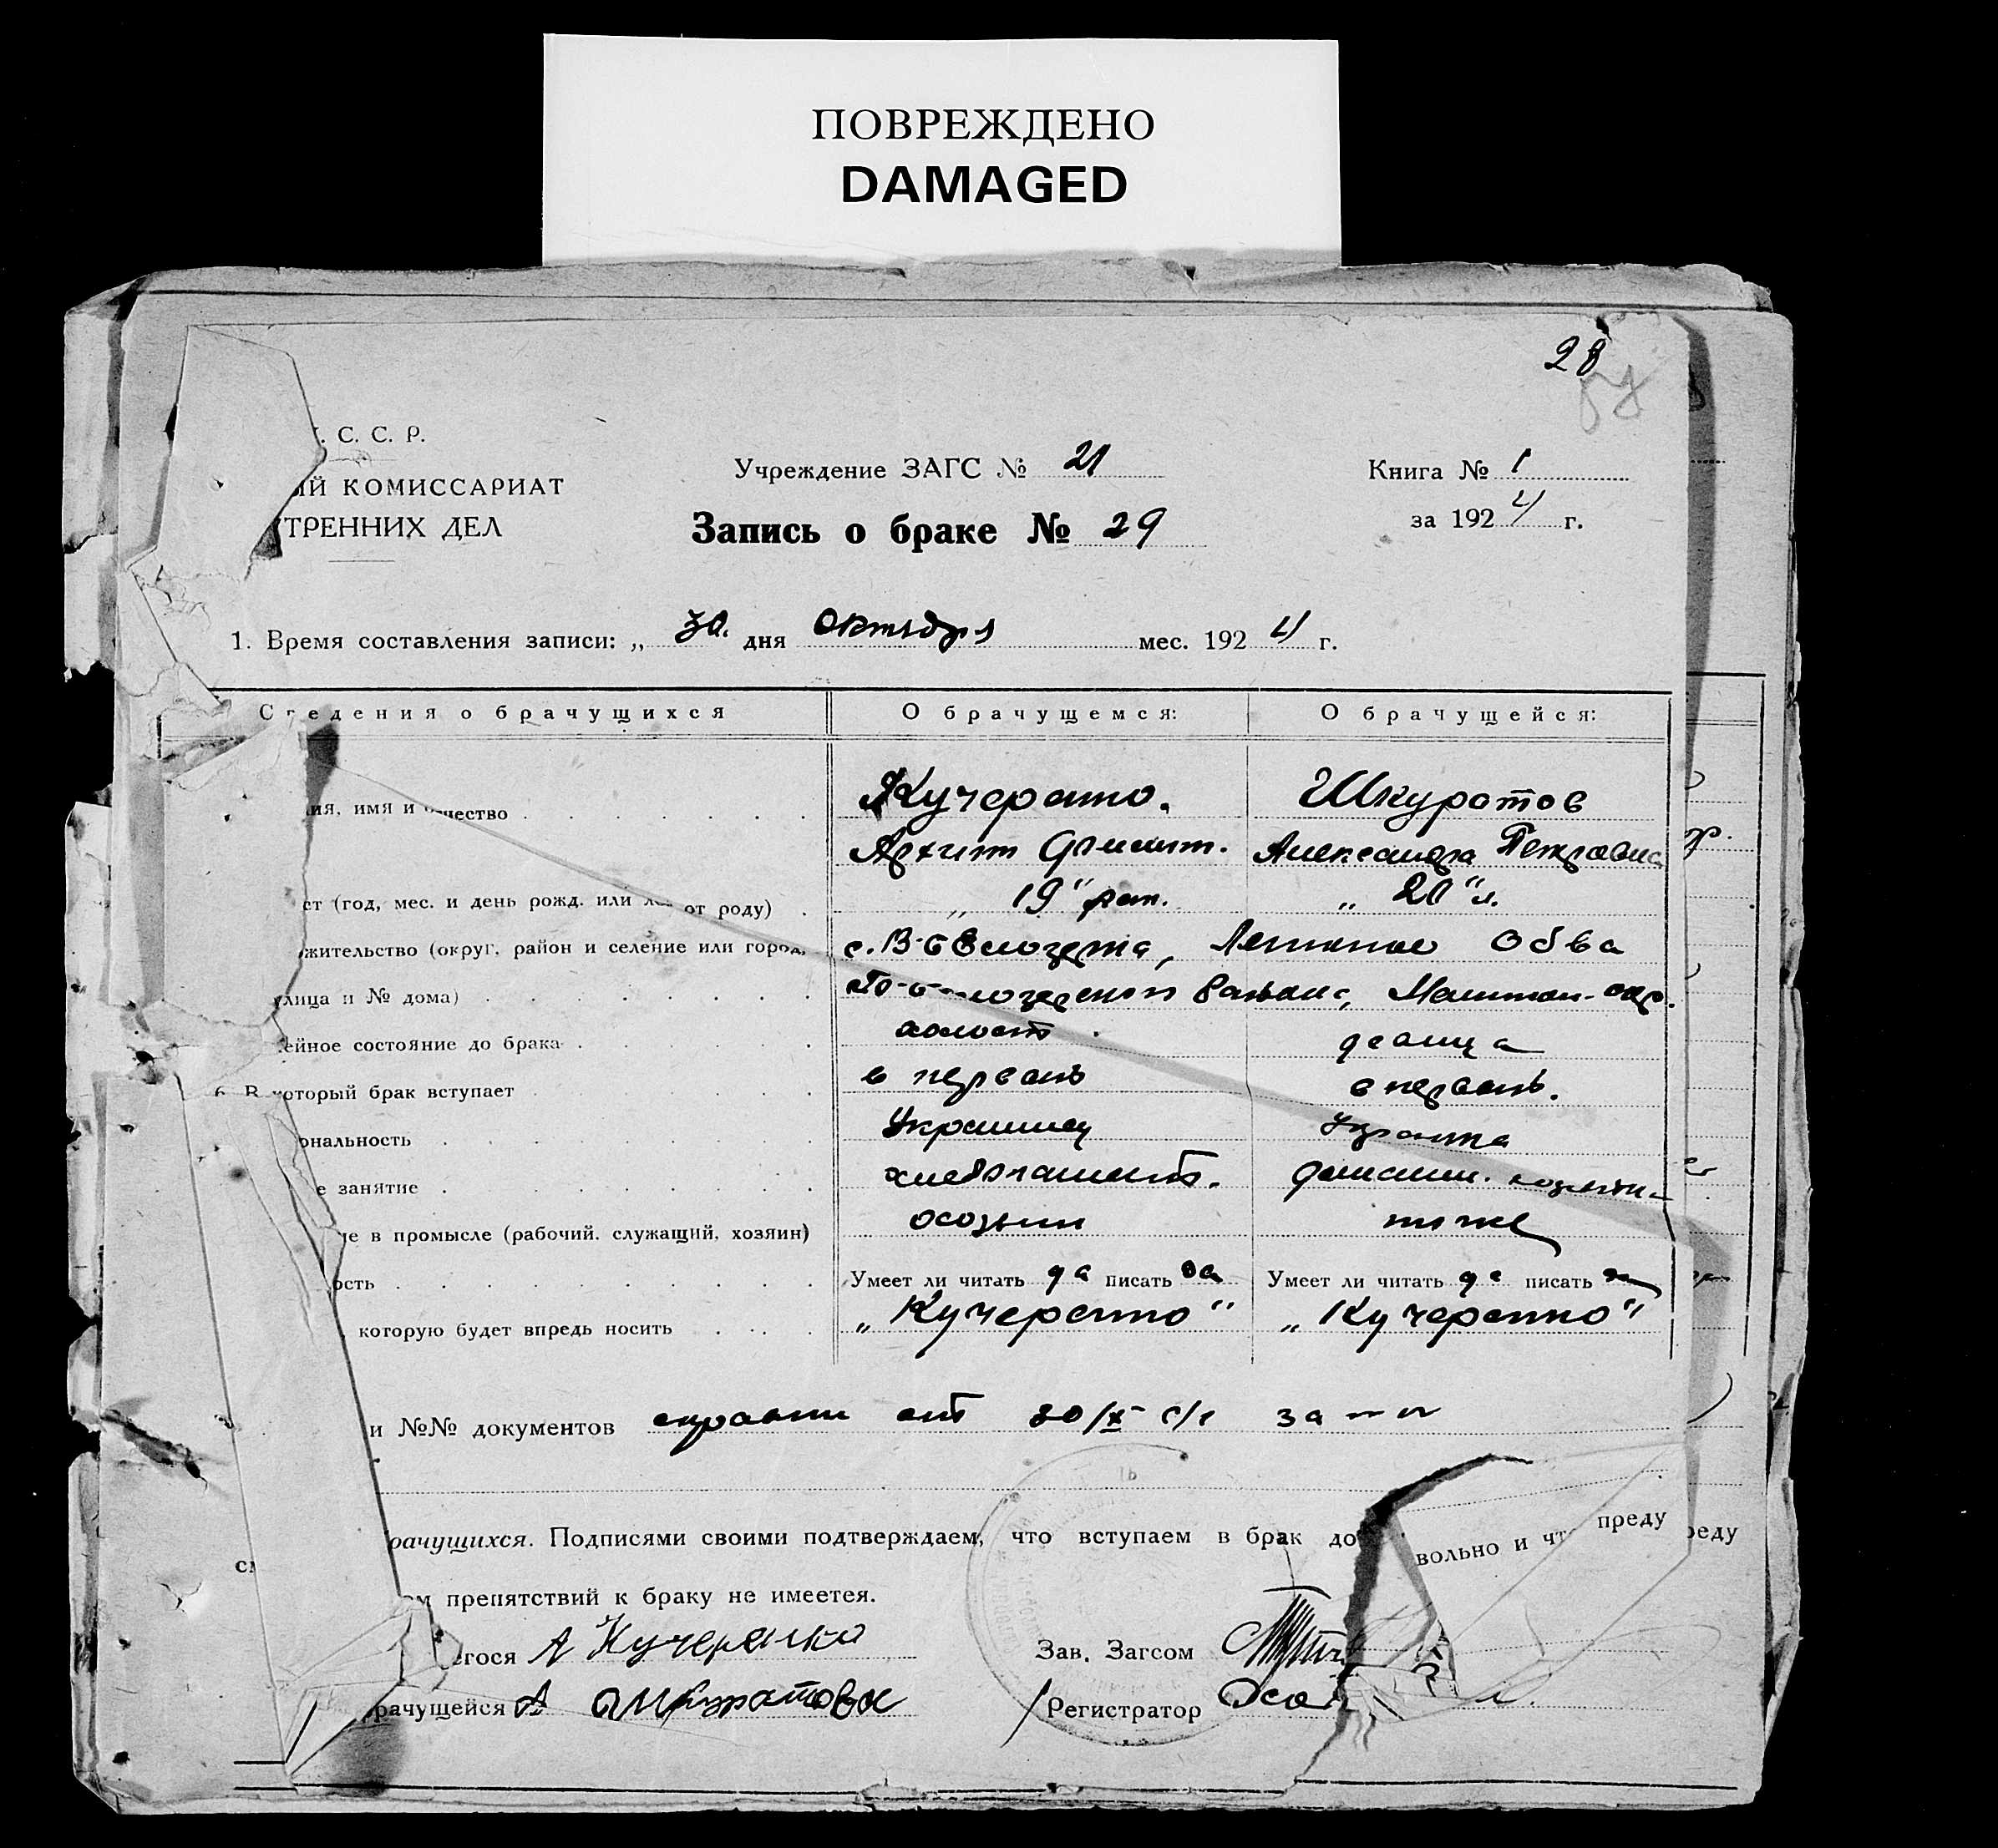 ПОВРЕЖДЕНО
DAMAGED
28
С. С. Р.
ЫЙ КОМИССАРИАТ
ТРЕННИХ ДЕЛ
Учреждение ЗАГС № 21
Книга № 1
Запись о браке № 29
за 1924 г.
1. Время составления записи: „ 30. дня Октября мес. 1924 г.
Сведения о брачущихся О брачущемся: О брачущейся:
ия, имя и отчество Кучеренко. Шкуратов
Архип Александра Петровна
ст (год, мес. и день рожд. или от роду) „ 19" рок. „ 20" л.
жительство (округ, район и селение или город, с. В-Белозерка, Обва
лица и № дома) района,
ейное состояние до брака холост девица
6. В который брак вступает в первый в первый.
ональность Украинец Украинка
е занятие хлебопашест. домашн.
ие в промысле (рабочий, служащий, хозяин) хозяин тоже
ость Умеет ли читать да писать да Умеет ли читать да писать
которую будет впредь носить „Кучеренко" „Кучеренко"
и №№ документов справки от 30/X с/г за
рачущихся. Подписями своими подтверждаем, что вступаем в брак до вольно и что преду реду
сл
ом препятствий к браку не имеется.
егося А Кучеренко Зав. Загсом
рачущейся А Шкуратова Регистратор